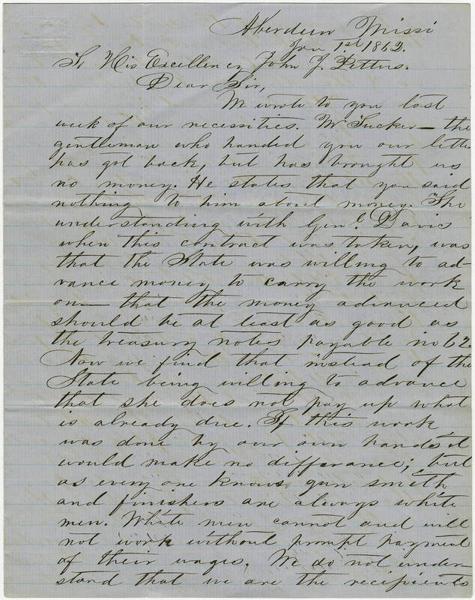 Aberdeen Missi
Jan 1st 1862.
To His Excellency John J. Pettus.
Dear Sir,
We wrote to you last
week of our necessities. Mr Tucker the
gentleman who handed you our letter
has got back, but has brought us
no money. He states that you said
nothing to him about money. The
understanding with Genl. Davis
when this contract was taken, was
that the State was willing to ad-
vance money to carry the work
on— that the money advanced
should be at least as good as
the treasury notes payable in 62
Now we find that instead of the
State being willing to advance
that she does not pay up what
is already due. If this work
was done by our own hands it
would make no differance; but
as every one knows, gun smith
and finishers are always white
men. White men cannot and will
not work without prompt payment
of their wages. We do not under
stand that we are the recipients